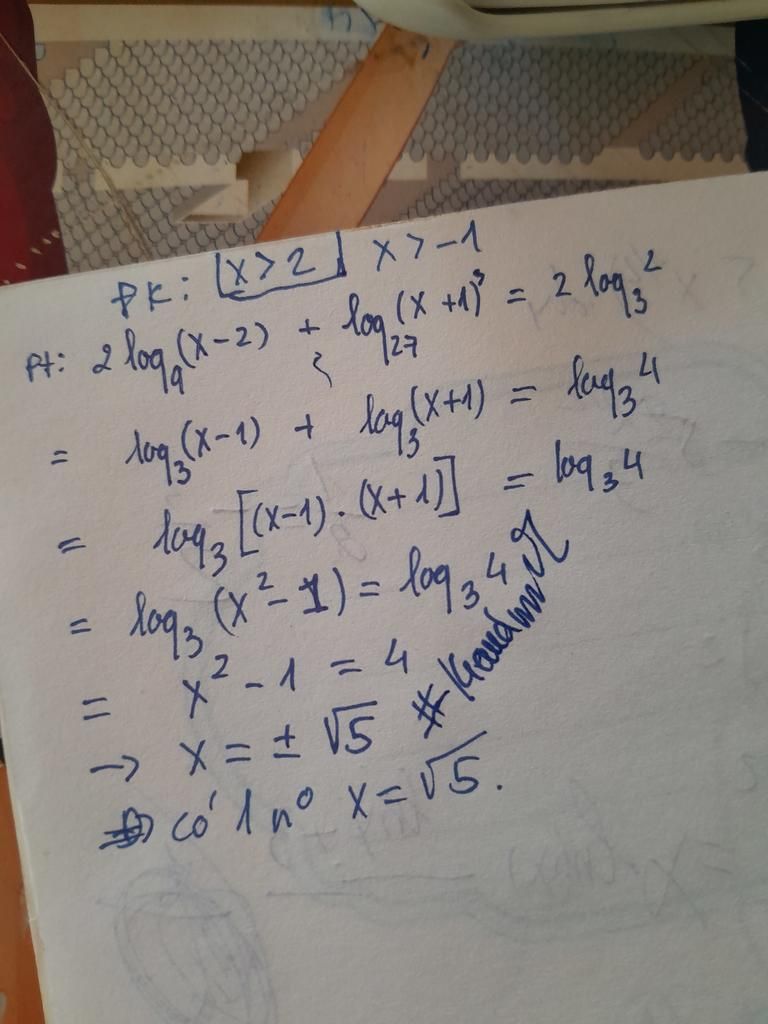 ĐK: x > 2 x > -1
Pt: 2 log₉(x-2) + log₂₇(x+1)³ = 2 log₃2
= log₃(x-1) + log₃(x+1) = log₃4
= log₃[(x-1).(x+1)] = log₃4
= log₃(x²-1) = log₃4
= x²-1 = 4
→ x = ± √5
có 1 n⁰ x = √5.